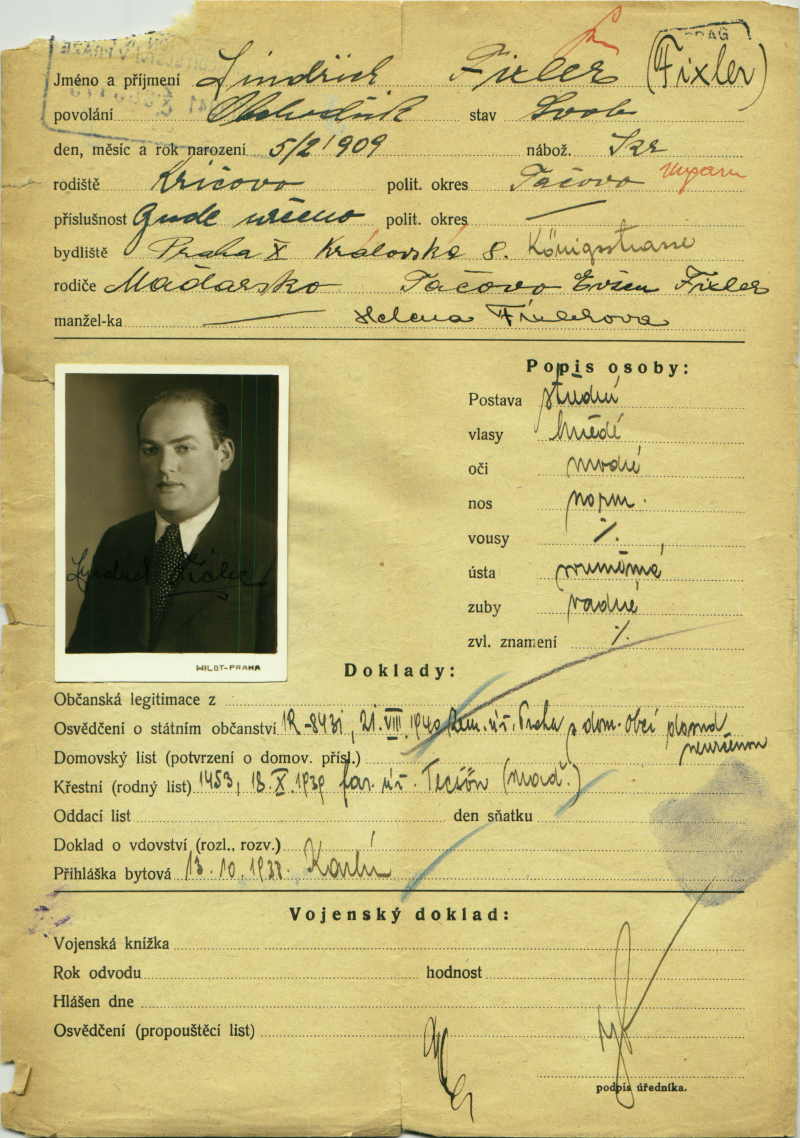 PRAG
Jméno a příjmení Jindřich Fixler (Fixler)
povolání Obchodník stav Svob.
den, měsíc a rok narození 5/2 1909 nábož. Izr
rodiště Kričovo polit. okres Tačovo Ungarn
příslušnost bude určeno polit. okres —
bydliště Praha X Královská 8. Königsstrasse
rodiče Maďarsko Tačovo Evžen Fixler
manžel-ka — Helena Fixlerova
Popis osoby:
Postava střední
vlasy hnědé
oči modré
nos norm.
vousy %
ústa
zuby vadné
zvl. znamení %
Jindřich Fixler
WILDT-PRAHA
Doklady:
Občanská legitimace z
Osvědčení o státním občanství 21. VIII 1940 Praha dom. Obcí
Domovský list (potvrzení o domov. přísl.)
Křestní (rodný list) 1453, 13. X. 1939 far. úř. (Maď.)
Oddací list den sňatku
Doklad o vdovství (rozl., rozv.)
Přihláška bytová 13. 10. 1938. Karlín
Vojenský doklad:
Vojenská knížka
Rok odvodu hodnost
Hlášen dne
Osvědčení (propouštěcí list)
podpis úředníka.